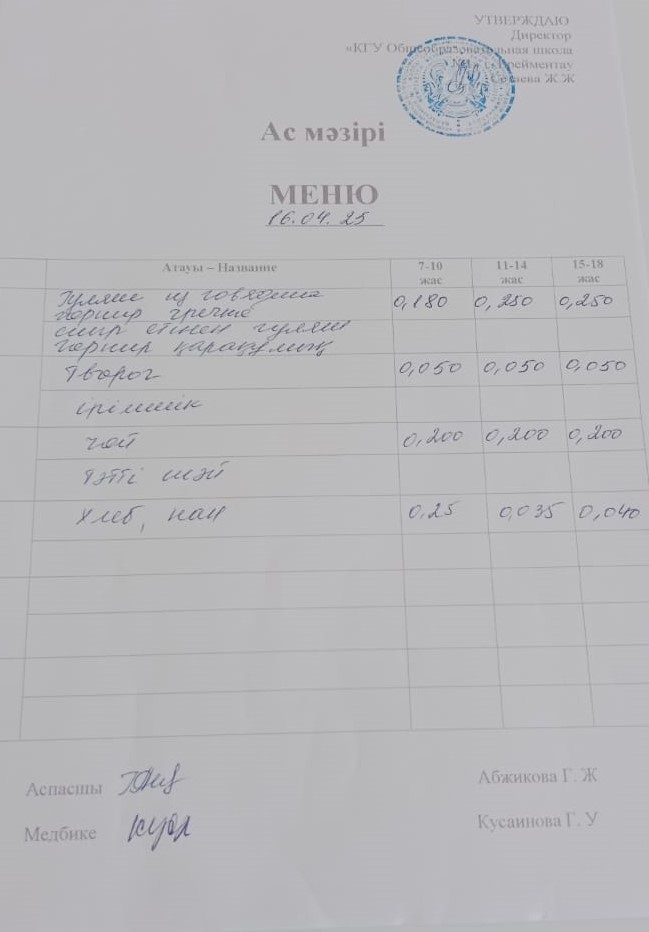 УТВЕРЖДАЮ
Директор
«КГУ Общеобразовательная школа
Ерейментау
Ж.Ж
Ас мәзірі
МЕНЮ
16.04.25
Атауы – Название 7-10 жас 11-14 жас 15-18 жас
Гуляш из говядина 0,180 0,250 0,250
гарнир гречка
сиыр етінен гуляш
гарнир қарақұмық
Творог 0,050 0,050 0,050
ірімшік
чай 0,200 0,200 0,200
тәтті шәй
хлеб, нан 0,25 0,035 0,040
Аспасшы Абжикова Г. Ж
Медбике Кусаинова Г. У